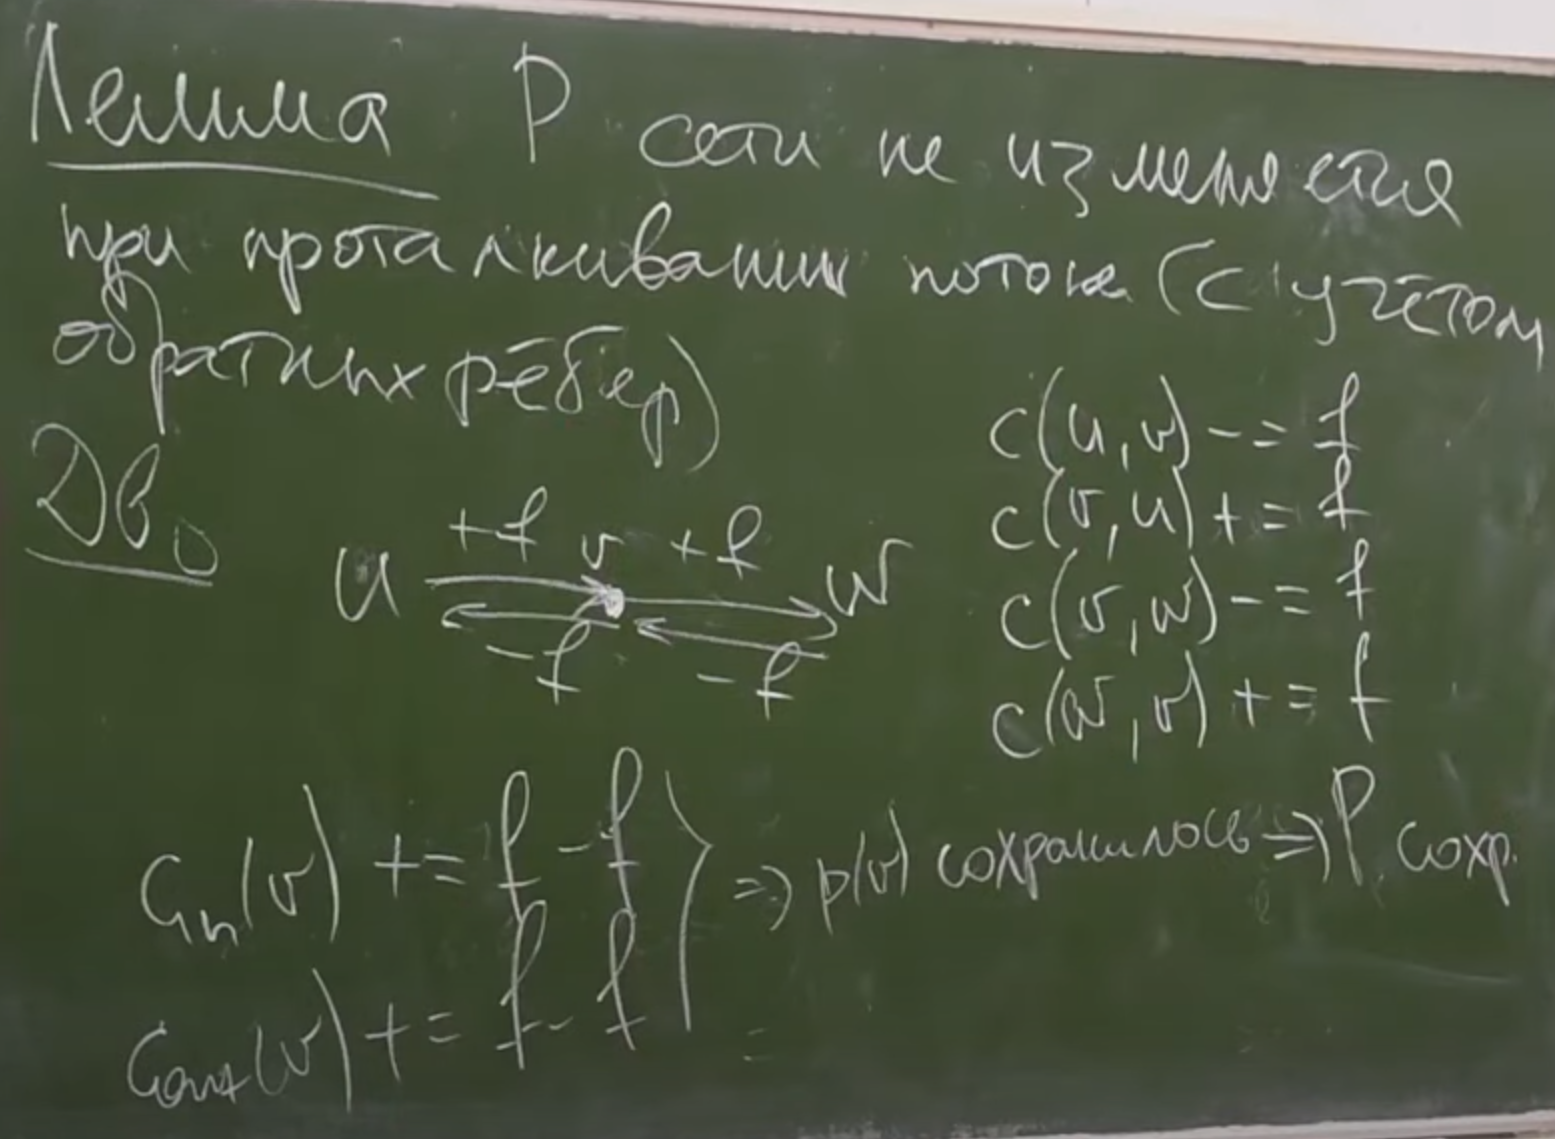 Лемма P сети не изменяется
при проталкивании потока (с учётом
обратных рёбер)
Дв.
u +f v +f w
-f -f
c(u,v) -= f
c(v,u) += f
c(v,w) -= f
c(w,v) += f
Cin(v) += f - f
Cout(v) += f - f
=> p(v) сохранилось => P сохр.